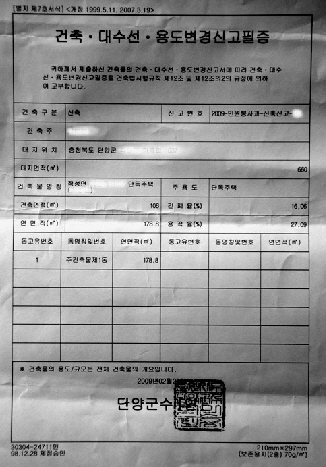 [별지 제7호서식] <개정 1999.5.11, 2007.3.19>
건축·대수선·용도변경신고필증
귀하께서 제출하신 건축물의 건축·대수
선·용도변경신고서에 따라 건축·대수
선·용도변경신고필증을 건축법시행규칙 제12조 및 제12조의2의 규정에 의하
여 교부합니다.
건축구분 신축 신고번호 2009-민원봉사과-신축신고-
건축주
대지위치 충청북도 단양군
대지면적(㎡) 660
건축물명칭 단독주택 주용도 단독주택
건축면적(㎡) 106 건폐율(%) 16.06
연면적(㎡) 178.8 용적율(%) 27.09
동고유번호 동명칭및번호 연면적(㎡) 동고유번호 동명칭및번호 연면적(㎡)
1 주건축물제1동 178.8
※ 건축물의 용도/규모는 전체 건축물의 개요입니다.
2009년02월
단양군수
30304-24711민
98.12.28 제정승인
210mm×297mm
(보존용지(2종) 70g/㎡)